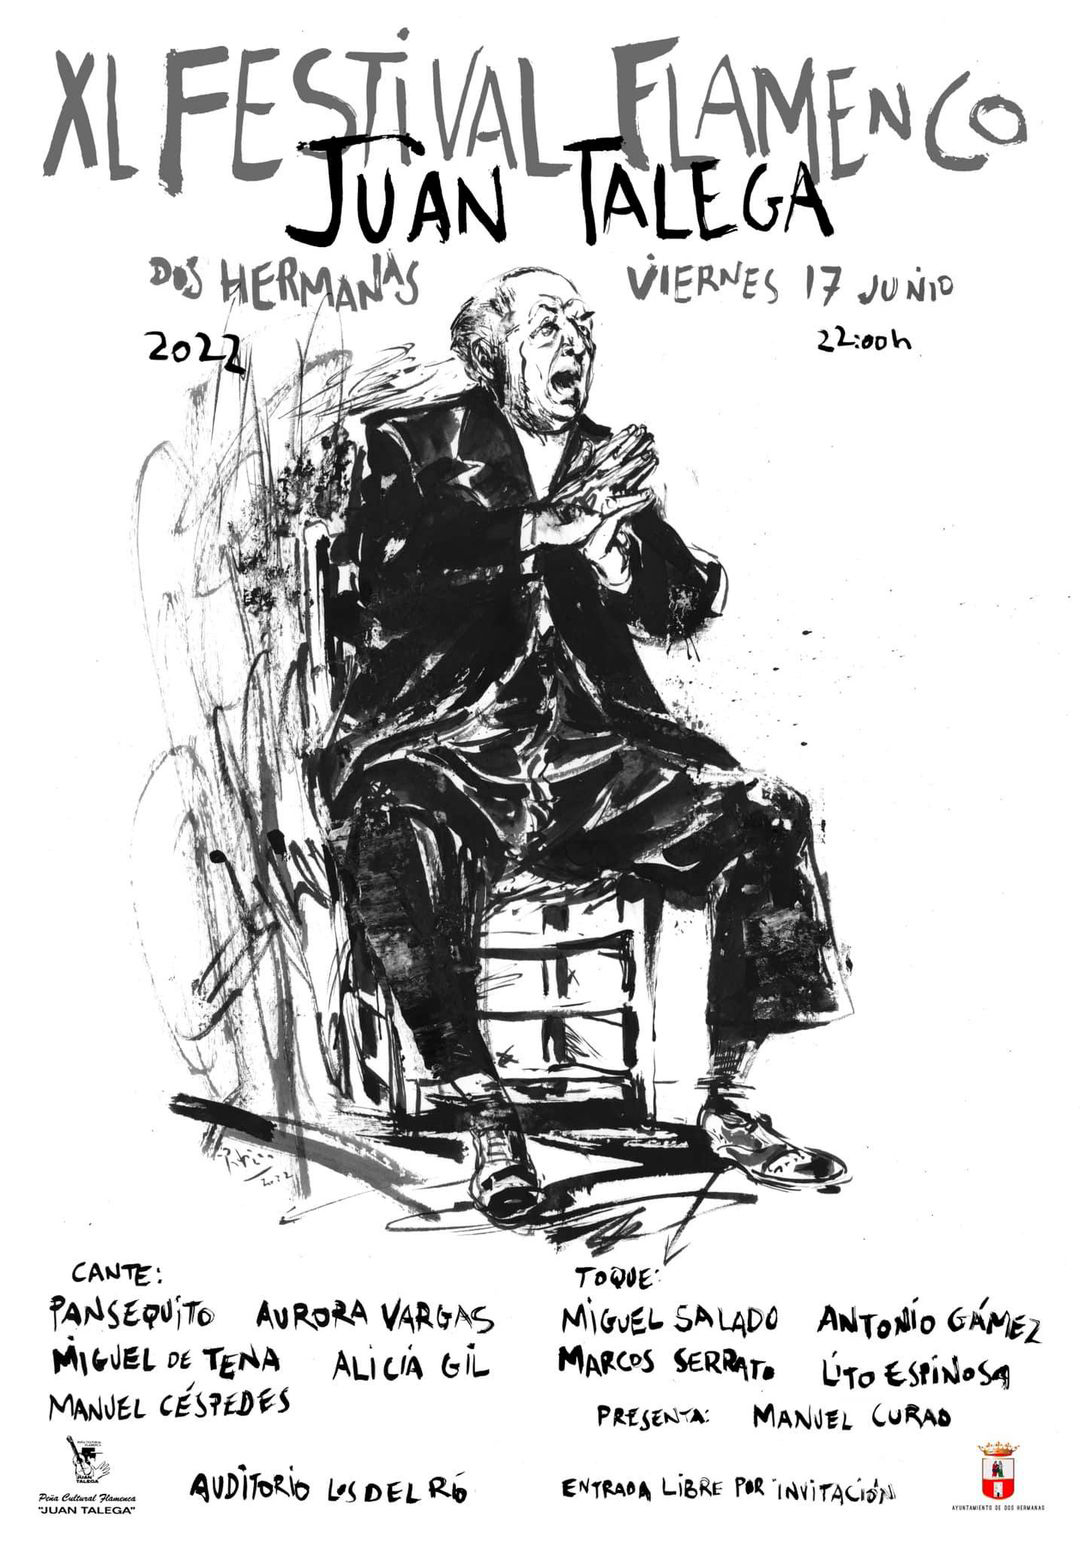 XL FESTIVAL FLAMENCO
JUAN TALEGA
DOS HERMANAS
2022
VIERNES 17 JUNIO
22:00h
2022
CANTE:
PANSEQUITO AURORA VARGAS
MIGUEL DE TENA ALICIA GIL
MANUEL CÉSPEDES
TOQUE:
MIGUEL SALADO ANTONIO GÁMEZ
MARCOS SERRATO LITO ESPINOSA
PRESENTA: MANUEL CURAO
JUAN
TALEGA
Peña Cultural Flamenca
"JUAN TALEGA"
AUDITORIO LOS DEL RÍO
ENTRADA LIBRE POR INVITACIÓN
AYUNTAMIENTO DE DOS HERMANAS